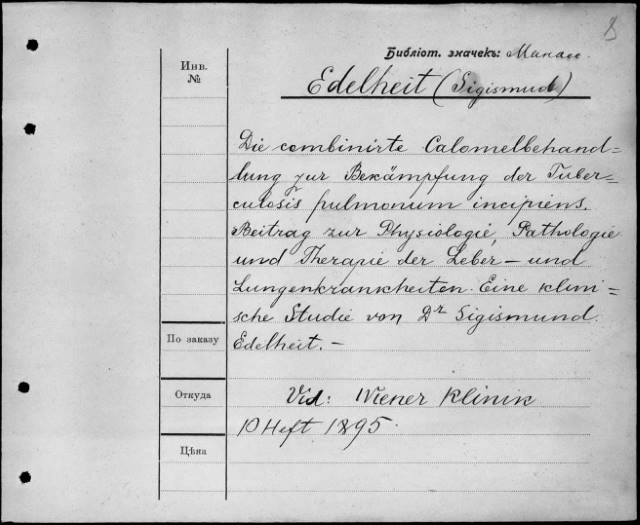 8
Библіот. значекъ:
Инв.
№
Edelheit (Sigismud)
Die combinirte Calomelbehand-
lung zur Bekämpfung der Tuber-
culosis pulmonum incipiens.
Beitrag zur Physiologie, Pathologie
und Therapie der Leber- und
Lungenkrankheiten. Eine klini-
sche Studie von Dr Sigismund
По заказу
Edelheit. -
Откуда
Vid: Wiener Klinik
10 Heft 1895.
Цѣна